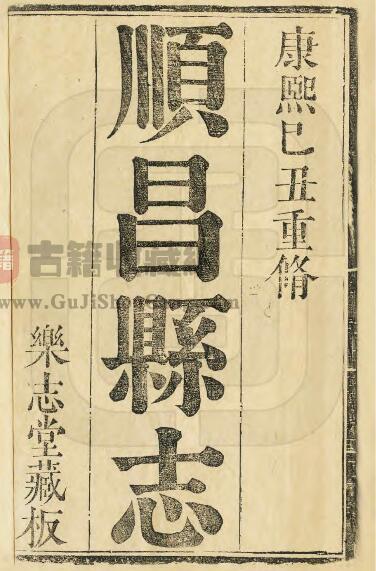 康熙己丑重脩
順昌縣志
樂志堂藏板
古籍收藏
www.GuJiSh